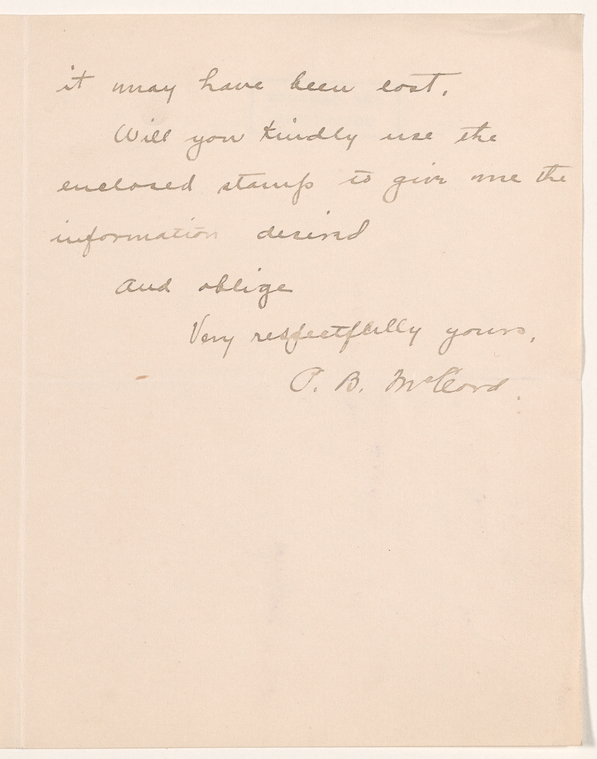 it may have been lost.
Will you kindly use the
enclosed stamp to give me the
information desired
And oblige
Very respectfully yours,
P. B. McCord.